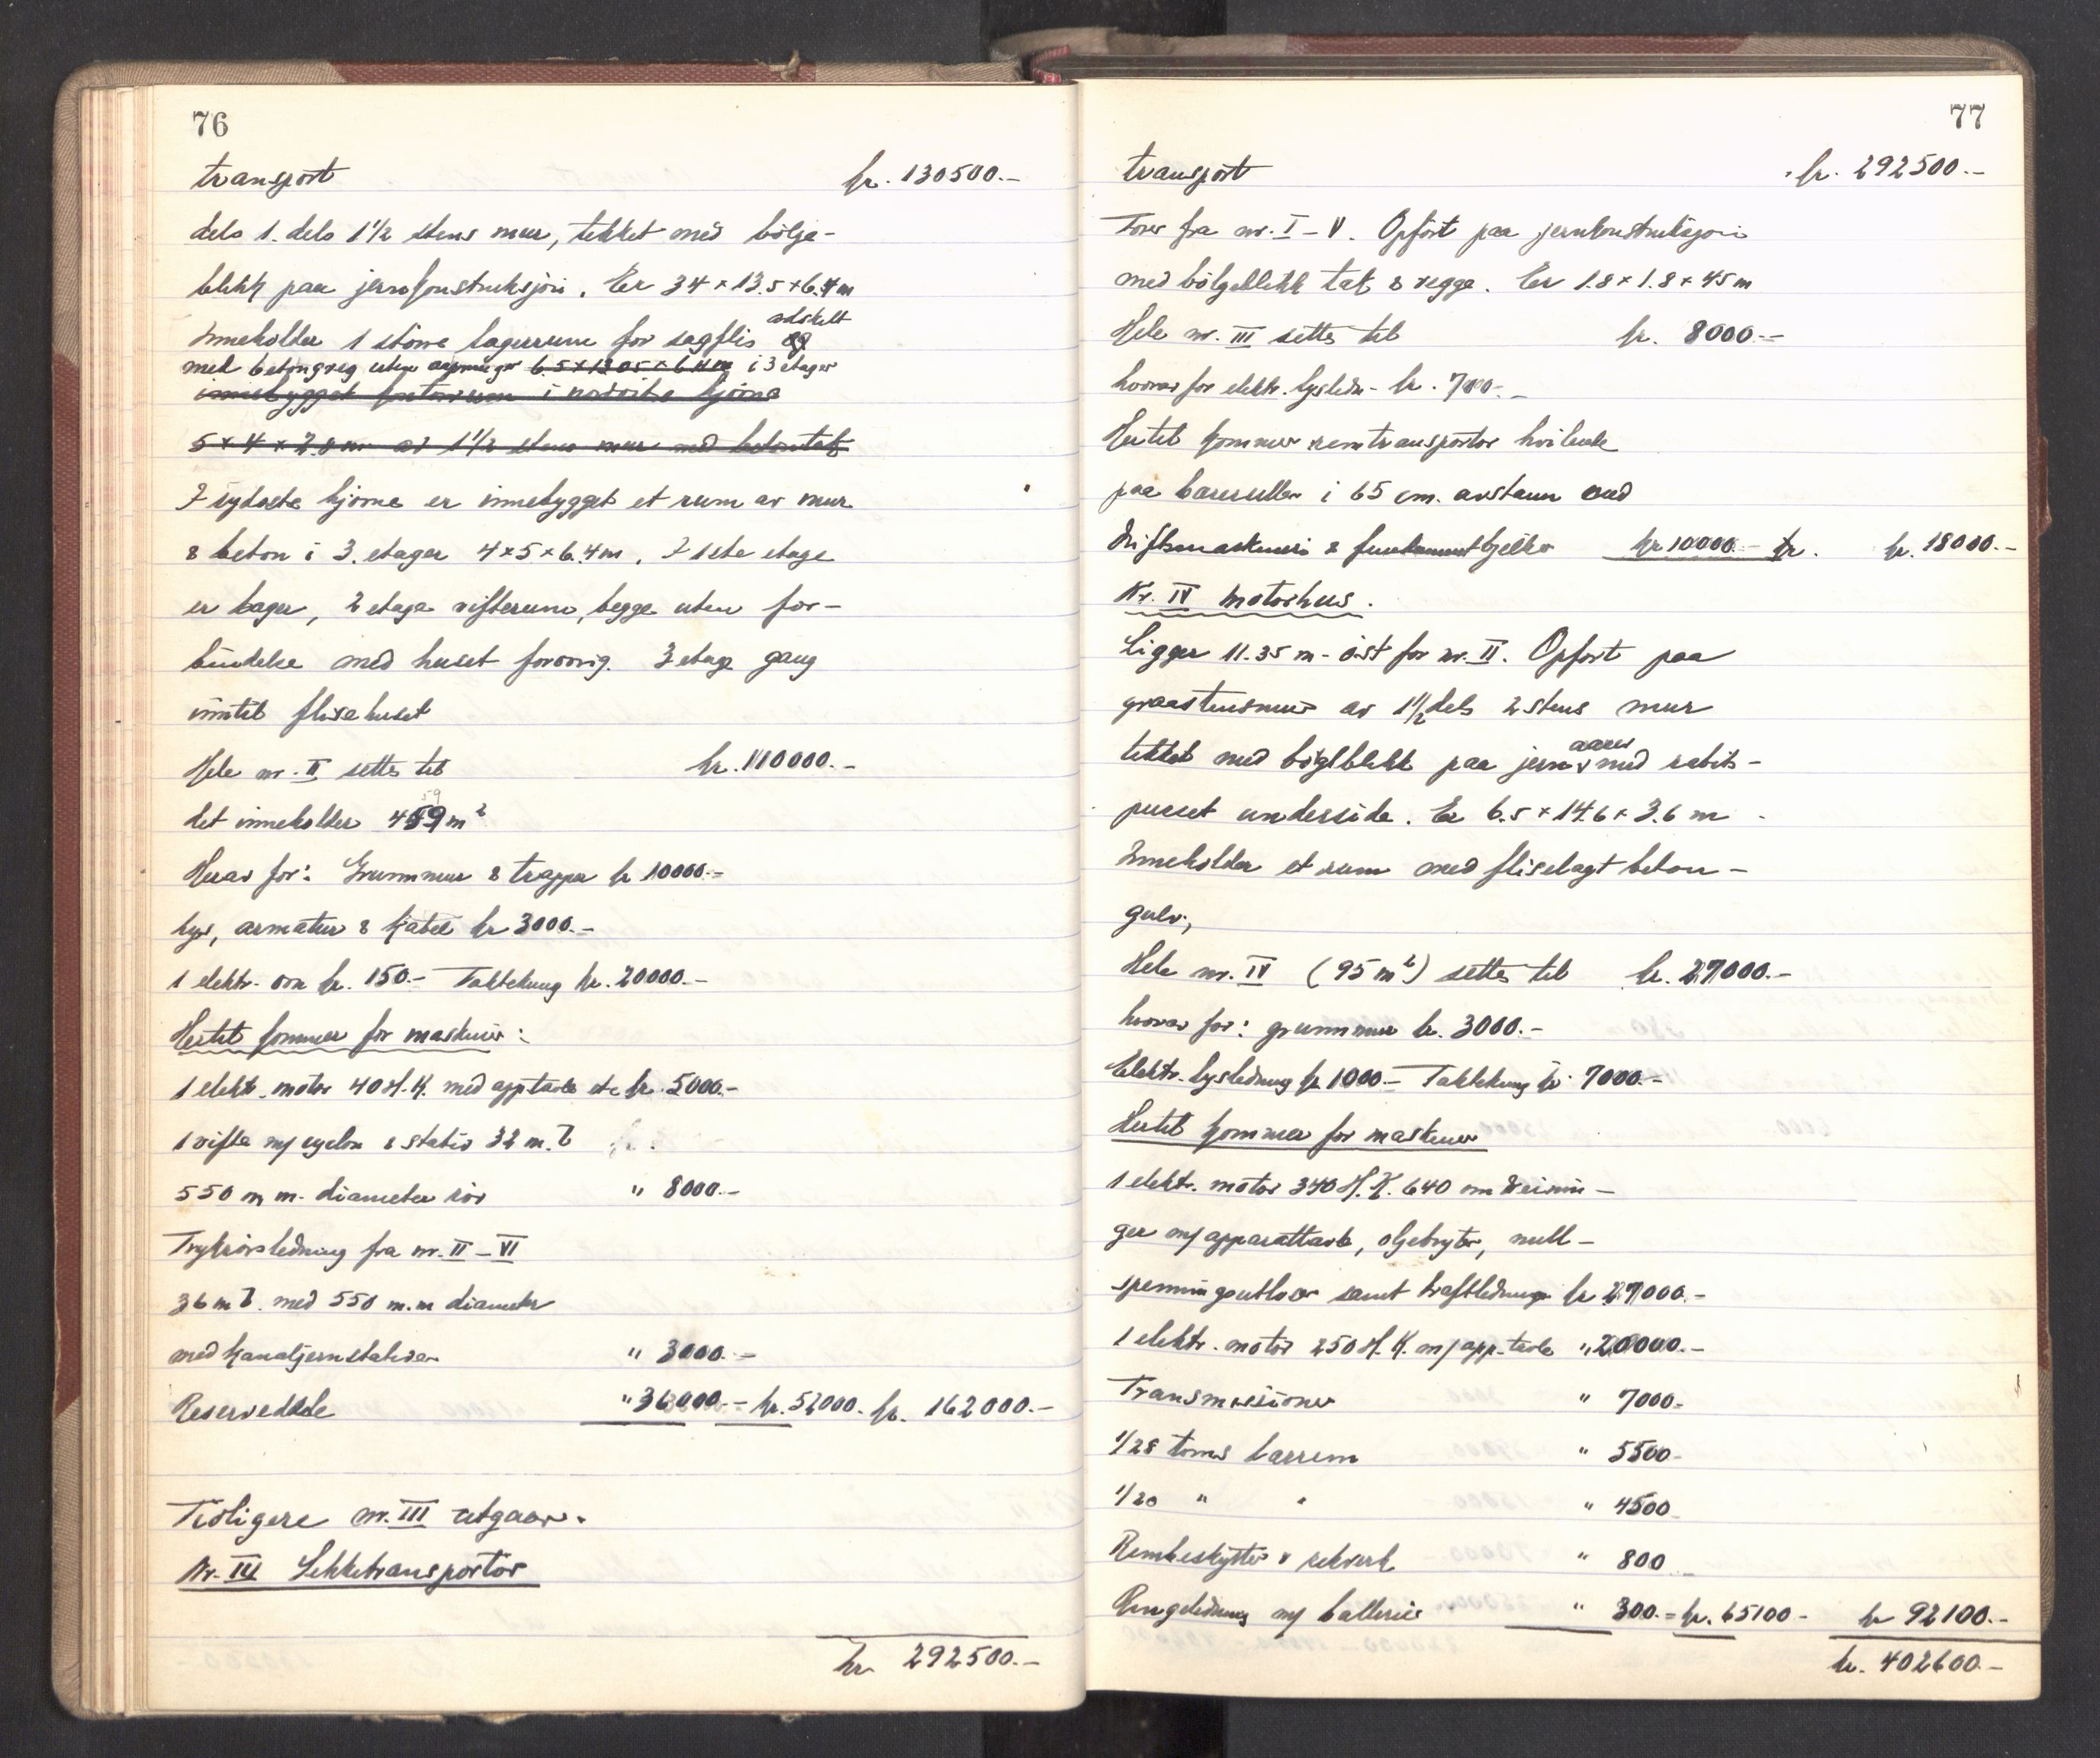 76
transport kr. 130500.-
dels 1. dels 1½ stens mur, tekket med bölge-
blekk paa jernkonstruksjon. Er 34 × 13.5 × 6.4 m
adskilt
Inneholder 1 större lagerrum for sagflis og
med betongveg uten aapninger 6.5 × 13.05 × 6.4 m i 3 etager
innebygget kontorrum i nordöstre hjörne
5 × 4 × 2.8 m av 1½ stens mur med betontak
I sydöstre hjörne er innebygget et rum av mur
& beton i 3. etager 4 × 5 × 6.4 m. I 1ste etage
er lager, 2 etage vifterum, begge uten for-
bindelse med huset forövrig. 3 etage gang
inntil flisehuset
Hele nr. II settes til kr. 110000.-
59
det inneholder 459 m²
Herav for: Grunnmur & trapper kr 10000.-
lys, armatur & kabel kr 3000.-
1 elektr. ovn kr. 150.- Taktekning kr. 20000.-
Hertil kommer for maskiner:
1 elektr. motor 40 H.K. med app.tavle etc kr. 5000.-
1 vifte m/ cyclon & stativ 32 m. l
550 m m. diameter rör " 8000.-
Trykrörsledning fra nr. II - VI
36 m l. med 550 m.m diameter
med kanaljernstativer " 3000.-
Reservedele " 36000.- kr. 52000. kr. 162000.-
Tidligere nr. III utgaar.
Nr. III Sekketransportör
kr 292500.-
77
transport kr. 292500.-
Förer fra nr. I - V. Opfört paa jernkonstruksjon
med bölgeblekk tak & vegge. Er 1.8 × 1.8 × 45 m
Hele nr. III settes til kr. 8000.-
hvorav for elektr. lysledn. kr. 700.-
Hertil kommer remtransportör hvilende
paa bæreruller i 65 cm. avstann med
driftsmaskineri & fundamentbjelker kr 10000.- kr. kr. 18000.-
Nr. IV Motorhus.
Ligger 11.35 m. öst for nr. II. Opfört paa
graastensmur av 1½ dels 2 stens mur
aaser
tekket med bölgblekk paa jern v med rabits-
pusset underside. Er 6.5 × 14.6 × 3.6 m
Inneholder et rum med fliselagt beton-
gulv,
Hele nr. IV (95 m²) settes til kr. 27000.-
hvorav for: grunnmur kr. 3000.-
Elektr. lysledning kr 1000.- Taktekning kr. 7000.-
Hertil kommer for maskiner
1 elektr. motor 340 H.K. 640 om dreinin-
ger m/ apparattavle, oljebryter, null-
spenningsutlöser samt kraftledninger kr 27000.-
1 elektr. motor 250 H.K. m/ app. tavle " 20000.-
Transmisioner " 7000.-
1/28 toms lærrem " 5500.-
1/20 " " " 4500
Rembeskytter & rekverk " 800
Ringeledning m/ batterier " 300.- = kr. 65100.- kr 92100.-
kr. 402600.-